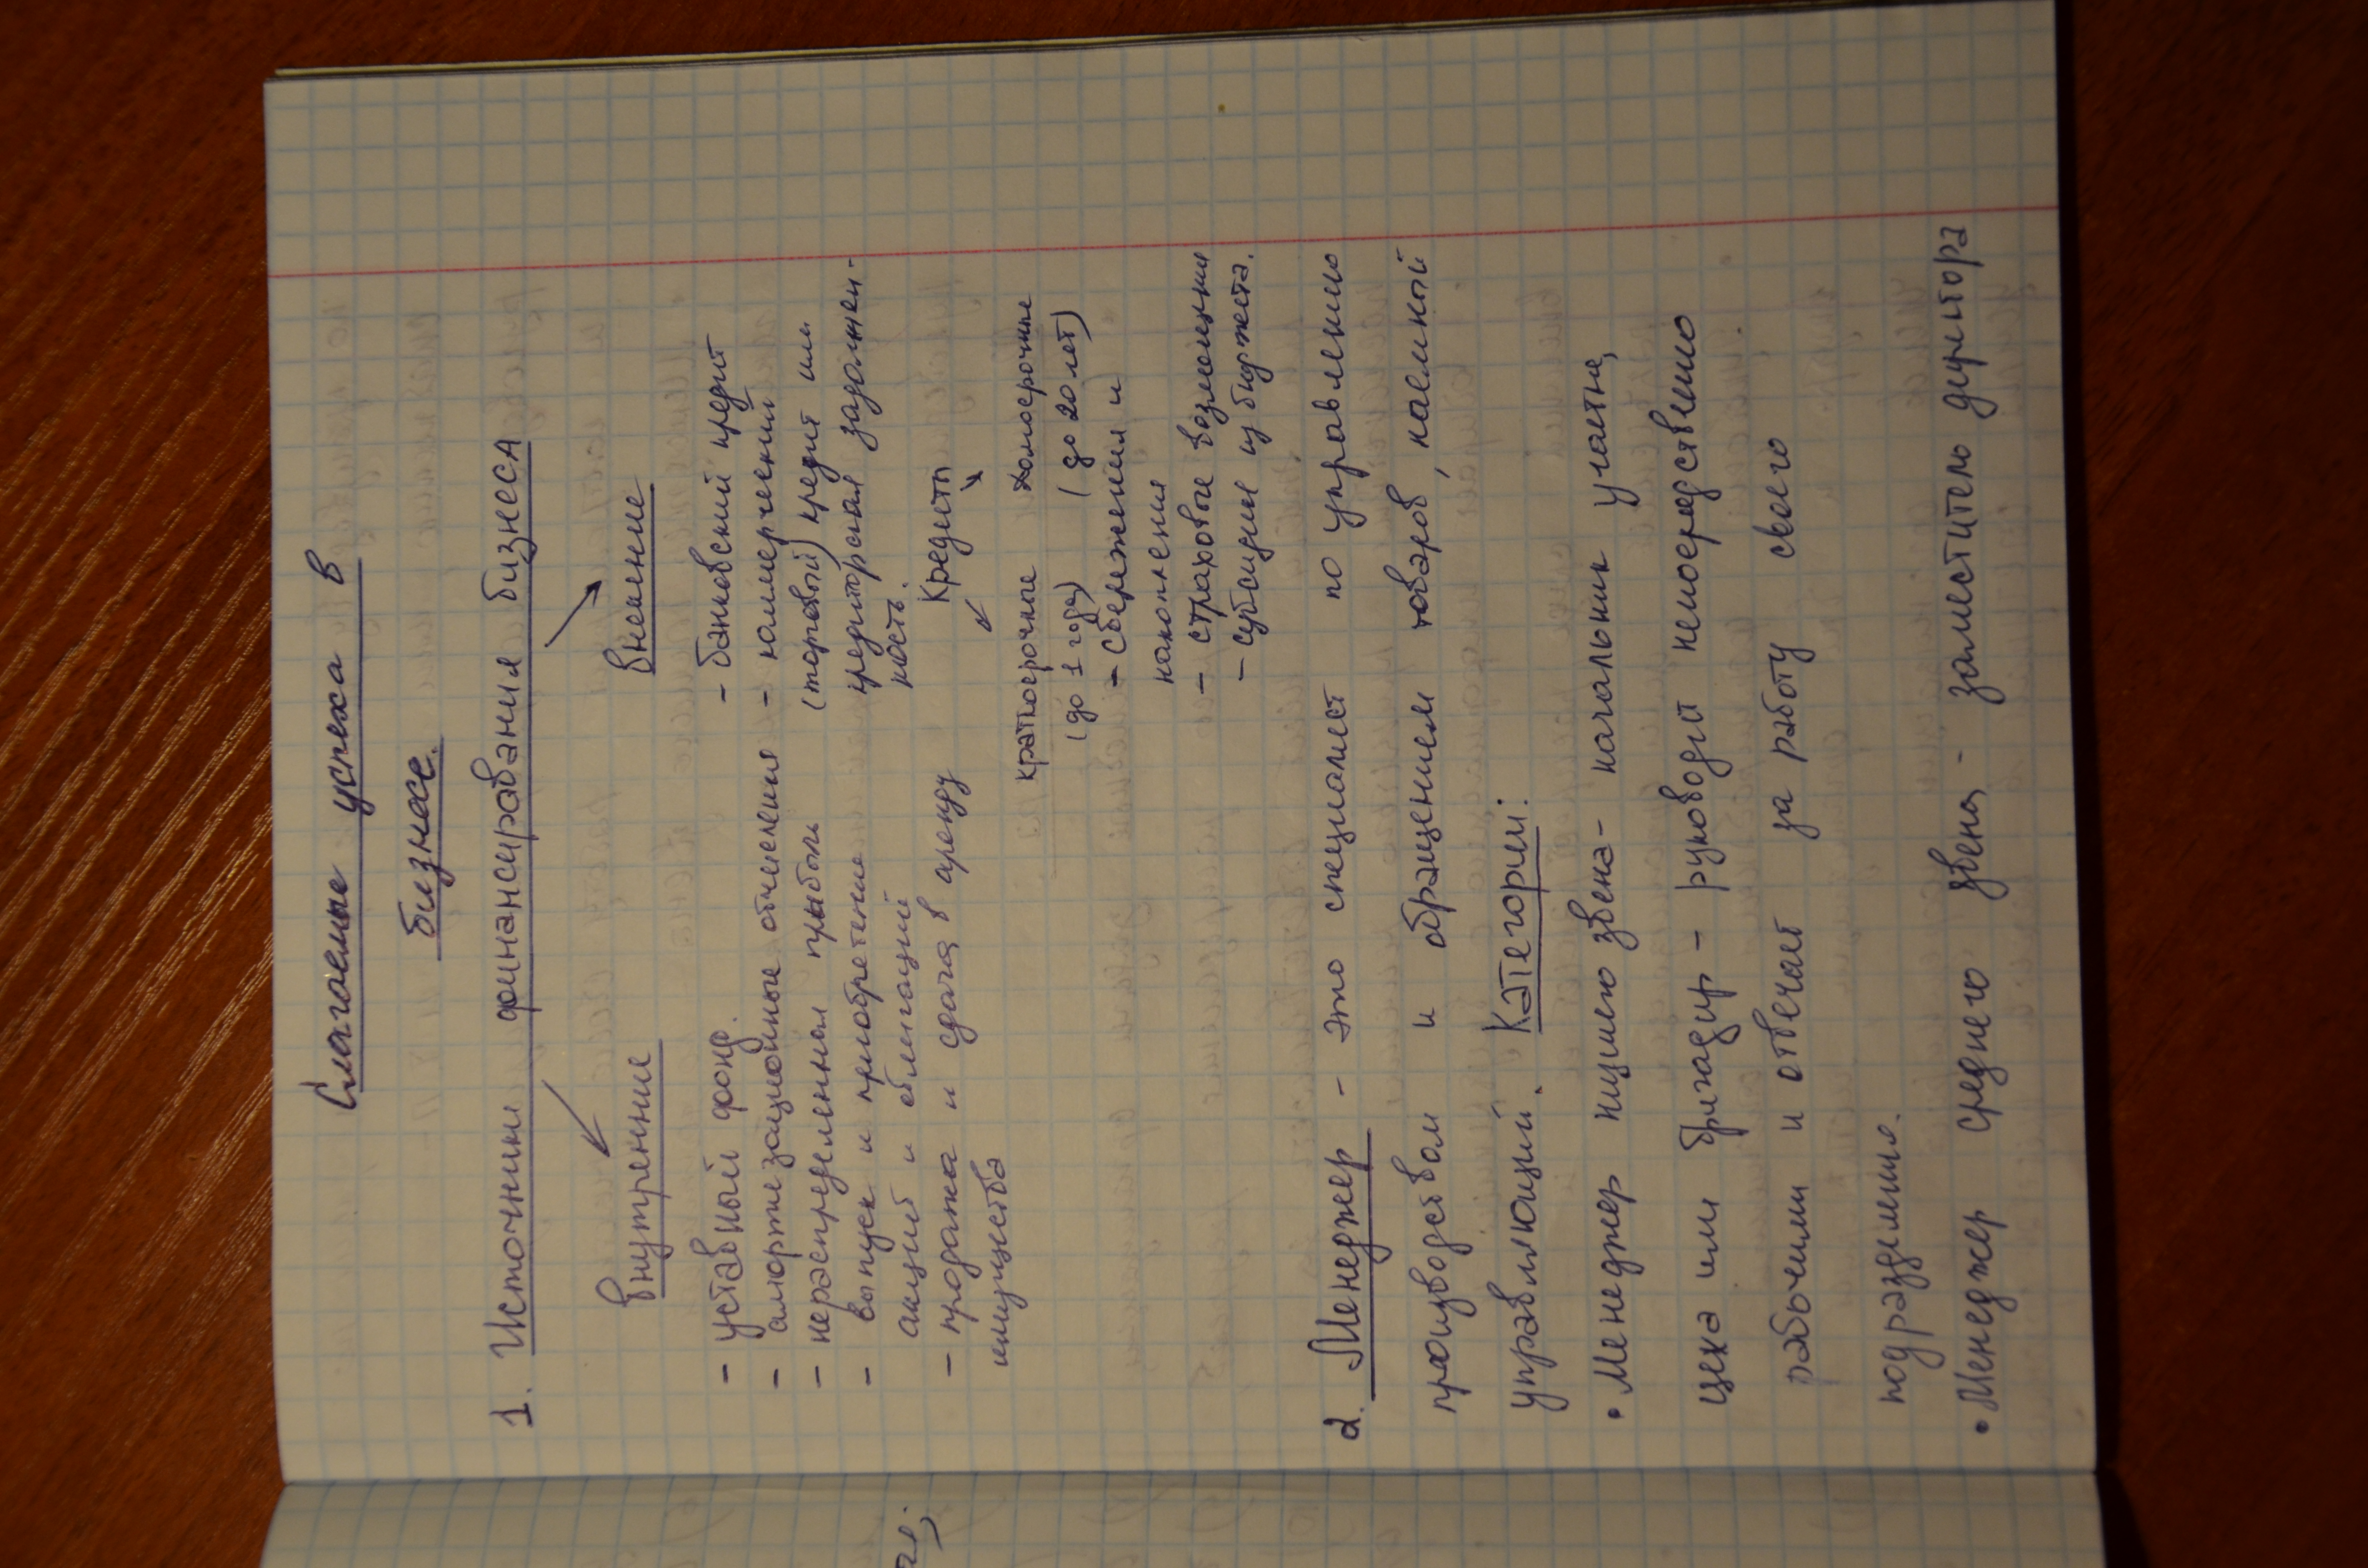 Слагаемые успеха в
бизнесе.
1. Источники финансирования бизнеса
внутренние
- уставный фонд.
- амортизационные отчисления
- нераспределенная прибыль
- выпуск и приобретение
акций и облигаций
- продажа и сдача в аренду
имущества
внешние
- банковский кредит
- коммерческий
(торговый) кредит или
кредиторская задолжен-
ность.
Кредиты
краткосрочные долгосрочные
(до 1 года) (до 20 лет)
- сбережения и
накопления
- страховые возмещения
- субсидии из бюджета.
2. Менеджер - это специалист по управлению
производством и обращением товаров, наемный
управляющий. Категории:
• Менеджер низшего звена - начальник участка,
цеха или бригадир - руководит непосредственно
рабочими и отвечает за работу своего
подразделения.
• Менеджер среднего звена - заместитель директора